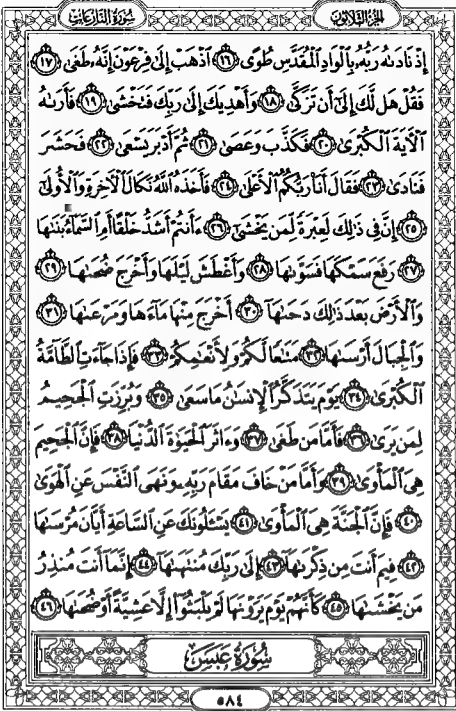 سُورَةُ النَّازِعَاتِ الجُزءُ الثَّلَاثُونَ
إِذْ نَادَىٰهُ رَبُّهُۥ بِٱلْوَادِ ٱلْمُقَدَّسِ طُوًى ١٦ ٱذْهَبْ إِلَىٰ فِرْعَوْنَ إِنَّهُۥ طَغَىٰ ١٧
فَقُلْ هَل لَّكَ إِلَىٰٓ أَن تَزَكَّىٰ ١٨ وَأَهْدِيَكَ إِلَىٰ رَبِّكَ فَتَخْشَىٰ ١٩ فَأَرَىٰهُ
ٱلْءَايَةَ ٱلْكُبْرَىٰ ٢٠ فَكَذَّبَ وَعَصَىٰ ٢١ ثُمَّ أَدْبَرَ يَسْعَىٰ ٢٢ فَحَشَرَ
فَنَادَىٰ ٢٣ فَقَالَ أَنَا۠ رَبُّكُمُ ٱلْأَعْلَىٰ ٢٤ فَأَخَذَهُ ٱللَّهُ نَكَالَ ٱلْءَاخِرَةِ وَٱلْأُولَىٰٓ
٢٥ إِنَّ فِى ذَٰلِكَ لَعِبْرَةً لِّمَن يَخْشَىٰٓ ٢٦ ءَأَنتُمْ أَشَدُّ خَلْقًا أَمِ ٱلسَّمَآءُ بَنَىٰهَا
٢٧ رَفَعَ سَمْكَهَا فَسَوَّىٰهَا ٢٨ وَأَغْطَشَ لَيْلَهَا وَأَخْرَجَ ضُحَىٰهَا ٢٩
وَٱلْأَرْضَ بَعْدَ ذَٰلِكَ دَحَىٰهَآ ٣٠ أَخْرَجَ مِنْهَا مَآءَهَا وَمَرْعَىٰهَا ٣١
وَٱلْجِبَالَ أَرْسَىٰهَا ٣٢ مَتَـٰعًا لَّكُمْ وَلِأَنْعَـٰمِكُمْ ٣٣ فَإِذَا جَآءَتِ ٱلطَّآمَّةُ
ٱلْكُبْرَىٰ ٣٤ يَوْمَ يَتَذَكَّرُ ٱلْإِنسَـٰنُ مَا سَعَىٰ ٣٥ وَبُرِّزَتِ ٱلْجَحِيمُ
لِمَن يَرَىٰ ٣٦ فَأَمَّا مَن طَغَىٰ ٣٧ وَءَاثَرَ ٱلْحَيَوٰةَ ٱلدُّنْيَا ٣٨ فَإِنَّ ٱلْجَحِيمَ
هِىَ ٱلْمَأْوَىٰ ٣٩ وَأَمَّا مَنْ خَافَ مَقَامَ رَبِّهِۦ وَنَهَى ٱلنَّفْسَ عَنِ ٱلْهَوَىٰ
٤٠ فَإِنَّ ٱلْجَنَّةَ هِىَ ٱلْمَأْوَىٰ ٤١ يَسْـَٔلُونَكَ عَنِ ٱلسَّاعَةِ أَيَّانَ مُرْسَىٰهَا
٤٢ فِيمَ أَنتَ مِن ذِكْرَىٰهَآ ٤٣ إِلَىٰ رَبِّكَ مُنتَهَىٰهَآ ٤٤ إِنَّمَآ أَنتَ مُنذِرُ
مَن يَخْشَىٰهَا ٤٥ كَأَنَّهُمْ يَوْمَ يَرَوْنَهَا لَمْ يَلْبَثُوٓا۟ إِلَّا عَشِيَّةً أَوْ ضُحَىٰهَا ٤٦
سُورَةُ عَبَسَ
٥٨٤